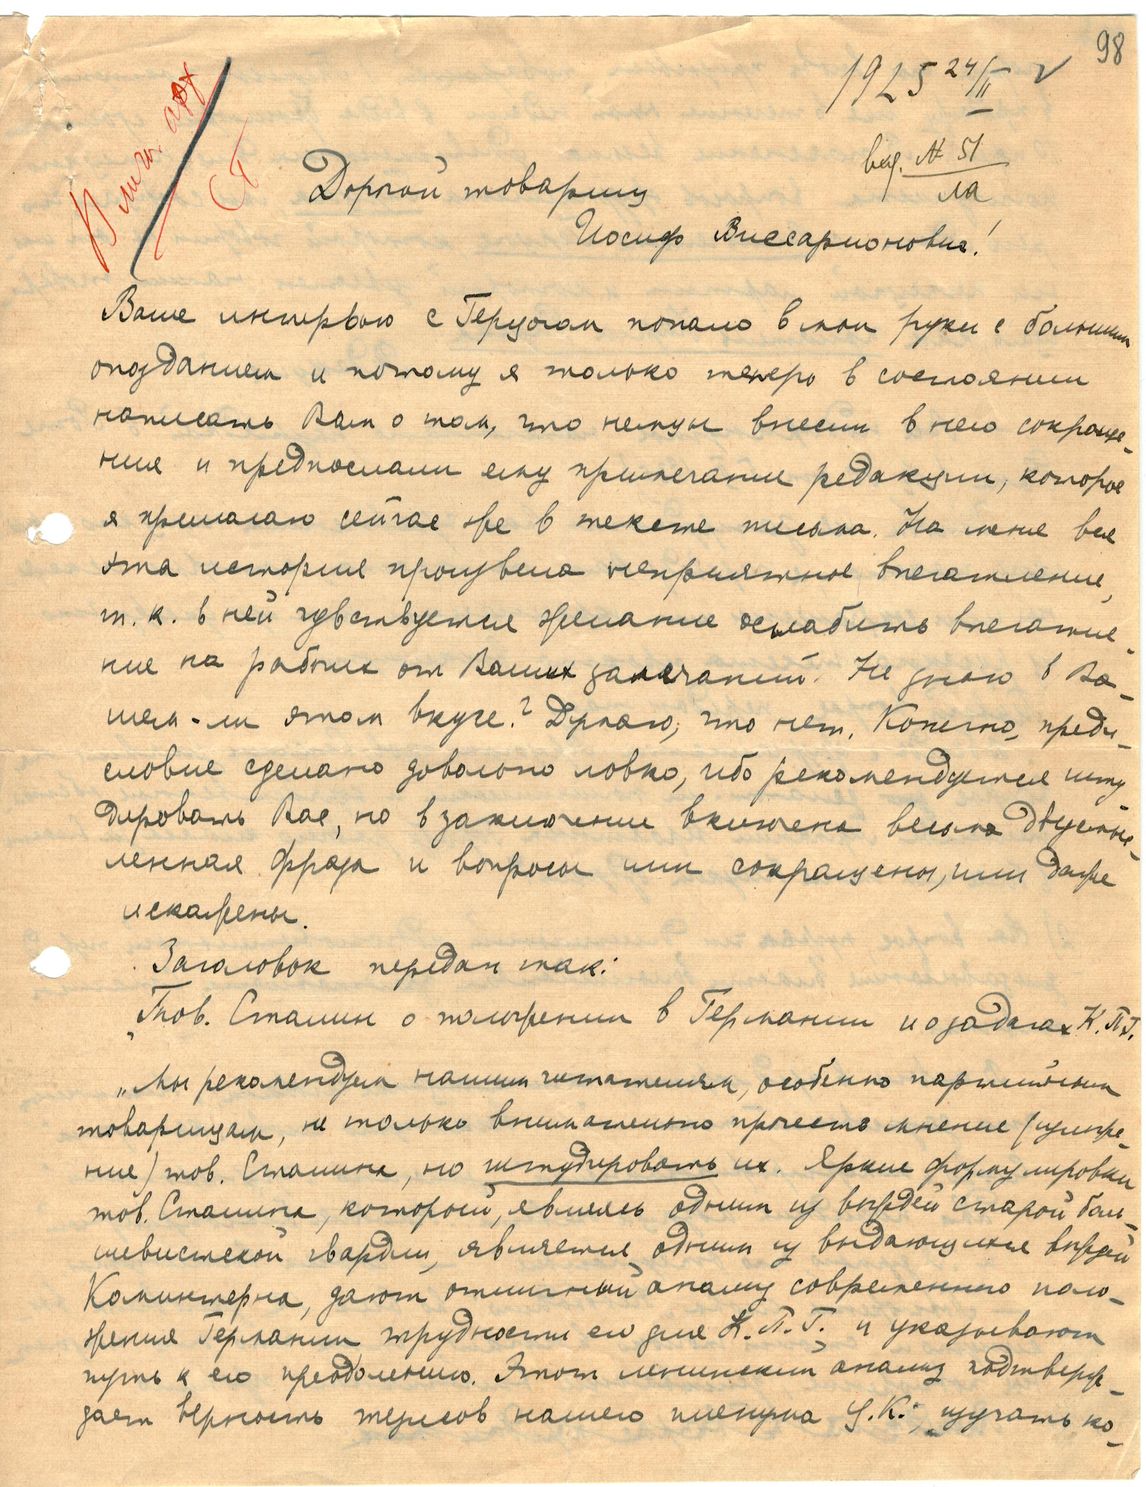 98
1925 24/II
вход. № 51
ла
В личн. арх
СТ
Дорогой товарищ
Иосиф Виссарионович!
Ваше интервью с Герцогом попало в мои руки с большим
опозданием и потому я только теперь в состоянии
написать Вам о том, что немцы внесли в него сокраще-
ния и предпослали ему примечание редакции, которое
я прилагаю сейчас же в тексте письма. На меня вся
эта история произвела неприятное впечатление,
т. к. в ней чувствуется желание ослабить впечатле-
ние на рабочих от Ваших замечаний. Не знаю в Ва-
шем-ли этом вкусе? Думаю, что нет. Конечно, преди-
словие сделано довольно ловко, ибо рекомендуется шту
дировать Вас, но в заключение включена весьма двусмыс-
ленная фраза и вопросы или сокращены, или даже
искажены.
Заголовок передан так:
"Тов. Сталин о положении в Германии и о задачах К.П.Г.
"Мы рекомендуем нашим читателям, особенно партийным
товарищам, не только внимательно прочесть мнение (сужде-
ние) тов. Сталина, но штудировать их. Яркие формулировки
тов. Сталина, который, являясь одним из вождей старой боль-
шевистской гвардии, является одним из выдающихся вождей
Коминтерна, дают отличный анализ современного поло-
жения Германии трудности его для К.П.Г. и указывают
путь к его преодолению. Этот ленинский анализ подтверж-
дает верность тезисов нашего пленума Ц.К.; изучать ко-